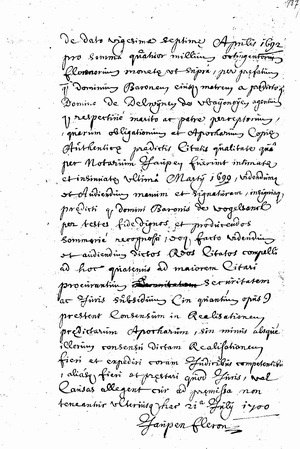 137
de dato vigesima septima Aprilis 1692
pro summa quatuor millium
florenorum moneta ut supra, per prefatum
dominum Baronem, eiusq matrem a predicto
Domino de
respective marito ac patre perceptorum,
quarum obligationum et Apocharum Copia
Authentica predictis Citatis qualitate qua
per Notarium fuerint intimata
et insinuata ultima Martij 1699, videndumq
et Audiendum manum et signaturam
predicti domini Baronis de
per testes fide dignos et producendos
summarie recognosci, facto videndum
et audiendum dictos Reos Citatos compelli
ad hoc quatenus ad maiorem Citari
procurantium securitatem
ac Juris subsidium in quantum opus
prestent Consensum in Realisationem
predictarum Apocharum, sin minus absque
illorum consensu dictam Realisationem
fieri et expediri coram Judicibus competentibus
aliasq fieri ac prestari quod Juris, vel
Causas allegent cur ad premissa non
teneantur ulterius 21a July 1700